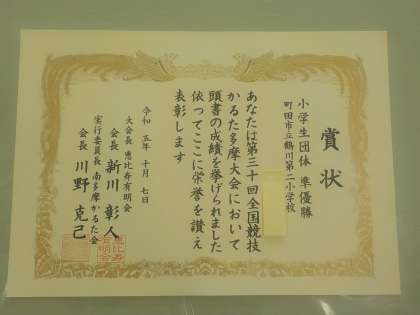 賞状
小学生団体 準優勝
町田市立鶴川第二小学校
あなたは第三十回全国競技
かるた多摩大会において
頭書の成績を挙げられました
依ってここに栄誉を讃え
表彰します
令和 五年 十月 七日
大会長 恵比寿有明会
会長 新川 彰人
実行委員長 南多摩かるた会
会長 川野 克己